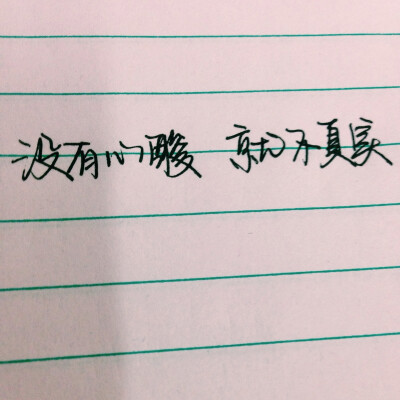 没有心酸 就不真实